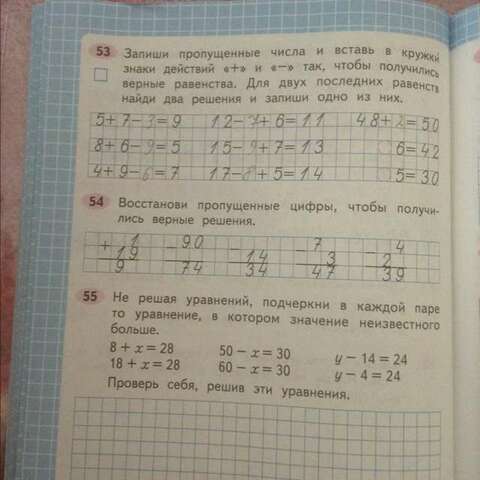 53 Запиши пропущенные числа и вставь в кружки
знаки действий «+» и «−» так, чтобы получились
верные равенства. Для двух последних равенств
найди два решения и запиши одно из них.
5+7−3=9 12−7+6=11 48+2=50
8+6−9=5 15−9+7=13 6=42
4+9−6=7 17−8+5=14 5=30
54 Восстанови пропущенные цифры, чтобы получи-
лись верные решения.
+ 1 − 90 − − 7 − 4
19 14 3 2
9 74 34 47 39
55 Не решая уравнений, подчеркни в каждой паре
то уравнение, в котором значение неизвестного
больше.
8 + x = 28 50 − x = 30 y − 14 = 24
18 + x = 28 60 − x = 30 y − 4 = 24
Проверь себя, решив эти уравнения.